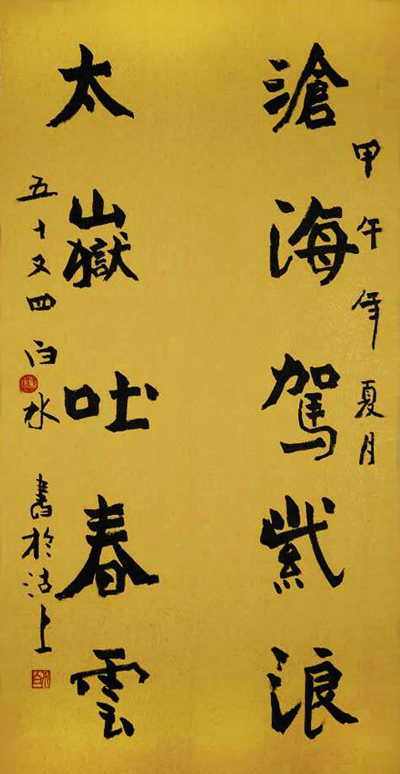 甲午年夏月
滄海駕紫浪
太嶽吐春雲
五十又四白水書於沽上